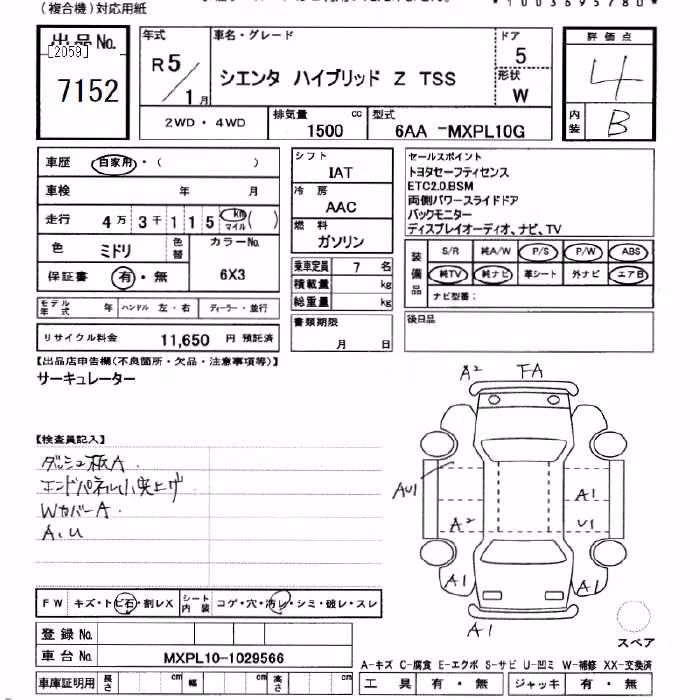 (複合機)対応用紙
*1003695780*
出品No.
[2059]
7152
年式
R5/1月
車名・グレード
シエンタ ハイブリッド Z TSS
ドア
5
形状
W
評価点
4
内装
B
2WD・4WD
排気量
1500 cc
型式
6AA -MXPL10G
車歴 自家用・( )
車検 年 月
走行 4万3千115 km マイル ( )
色 ミドリ 色替
カラーNo.
6X3
保証書 有・無
モデル年式 年 ハンドル 左・右 ディーラー・並行
リサイクル料金 11,650 円 預託済
シフト
IAT
冷房
AAC
燃料
ガソリン
乗車定員 7 名
積載量 kg
総重量 kg
書類期限
月 日
セールスポイント
トヨタセーフティセンス
ETC2.0.BSM
両側パワースライドドア
バックモニター
ディスプレイオーディオ、ナビ、TV
装備品
S/R 純A/W P/S P/W ABS
純TV 純ナビ 革シート 外ナビ エアB
ナビ型番:
後日品
【出品店申告欄(不良箇所・欠品・注意事項等)】
サーキュレーター
【検査員記入】
ダッシュ板A
エンドパネル小突上げ
WカバーA
A、U
A2 FA
AU1
A1
A2 U1
A1 A1
A1
スペア
FW キズ・トビ石・割レX
シート内装 コゲ・穴・汚レ・シミ・破レ・スレ
登録No.
車台No. MXPL10-1029566
車庫証明用 長さ cm 幅 cm 高さ cm
A-キズ C-腐食 E-エクボ S-サビ U-凹ミ W-補修 XX-交換済
工具 有・無 ジャッキ 有・無